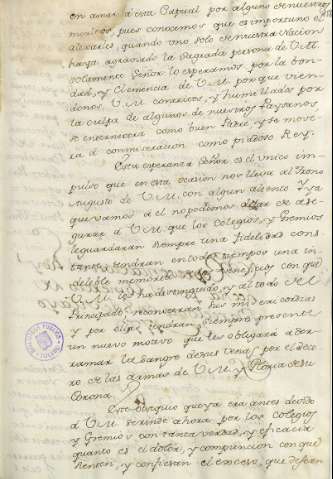 en amar a esta Capital por alguno de nuestros
menores, pues conocemos que es importuno el
alexarles, quando uno solo de nuestra Nacion
haya agraviado la Sagrada persona de V.M.
solamente Señor lo esperamos por la bon-
dad, y Clemencia de V.M. porque vien-
donos V.M. contritos, y humillados por
la culpa de algunos de nuestros Paysanos
se enternecerá como buen Padre, y se move-
rá á conmiseracion como piadoso Rey.
Esta esperanza Señor es el unico im-
pulso que en esta ocasión nos lleva al Trono
Augusto de V.M. con algun aliento. Y ya
que vamos a el no podemos dexar de ase-
gurar á V.M. que los Colegios, y Gremios
le guardarán siempre una fidelidad cons-
tante, tendran en todo tiempo una in-
deleble memoria beneficios con que
V.M. los ha distinguido, y al todo de el
Principado, reconocerán sus misericordias
y por ellas tendran siempre presente
un nuevo motivo que les obligará a der-
ramar la sangre de sus venas por el deco-
ro de las armas de V.M. y Gloria de su
Corona.
Este obsequio que ya era antes devido
á V.M. se rinde ahora por los Colegios
y Gremios con tanta verdad, y eficacia
quanto es el dolor, y compuncion con que
sienten, y confiesan el exceso, que